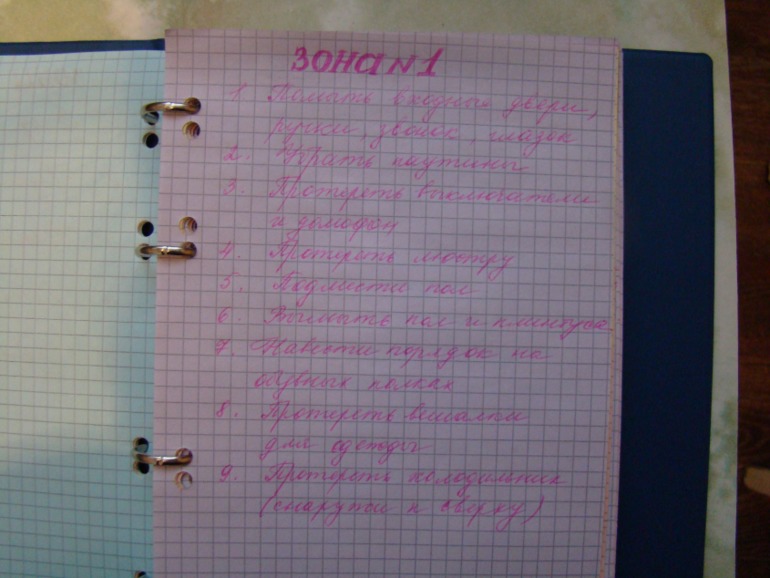 ЗОНА N 1
1. Помыть входные двери,
ручки, звонок, глазок
2. Убрать паутины
3. Протереть выключатели
и домофон
4. Протереть люстру
5. Подмести пол
6. Вымыть пол и плинтуса
7. Навести порядок на
обувных полках
8. Протереть вешалки
для одежды
9. Протереть холодильник
(снаружи и сверху)